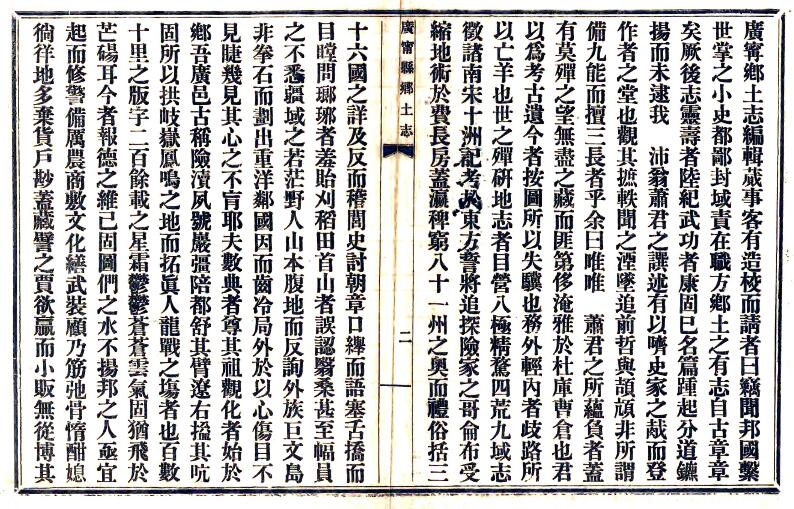 廣甯鄉土志編輯蕆事客有造校而請者曰竊聞邦國繫
世掌之小史都鄙封域責在職方鄉土之有志自古章章
矣厥後志靈壽者陸紀武功者康固已名篇踵起分道鑣
揚而未逮我 沛翁蕭君之譔述有以嚌史家之胾而登
作者之堂也觀其摭軼聞之湮墜追前哲與頡頏非所謂
備九能而擅三長者乎余曰唯唯 蕭君之所蘊負者蓋
有莫殫之望無盡之藏而匪第侈淹雅於杜庫曹倉也君
以爲考古遺今者按圖所以失驥也務外輕內者歧路所
以亡羊也世之殫硏地志者目營八極精騖四荒九域志
徵諸南宋十洲記考於東方誓將追探險家之哥侖布受
縮地術於費長房蓋瀛稗窮八十一州之奧而禮俗括三
廣甯縣鄉土志
二
十六國之詳及反而稽閭史討朝章口纏而語塞舌撟而
目瞠問瑯琊者羞貽刈稻田首山者誤認翳桑甚至幅員
之不悉疆域之若茫野人山本腹地而反詢外族巨文島
非拳石而劃出重洋鄰國因而齒冷局外於以心傷目不
見睫幾見其心之不盲耶夫數典者尊其祖觀化者始於
鄉吾廣邑古稱險瀆夙號嚴彊陪都舒其臂遼右搤其吭
固所以拱岐嶽鳳鳴之地而拓眞人龍戰之塲者也百數
十里之版宇二百餘載之星霜鬱鬱蒼蒼雲氣固猶飛於
芒碭耳今者報德之維已固圖們之水不揚邦之人亟宜
起而修警備厲農商敷文化繕武裝顧乃筋弛骨惰酣媳
徜徉地多棄貨戶尠蓋藏譬之賈欲贏而小販無從博其